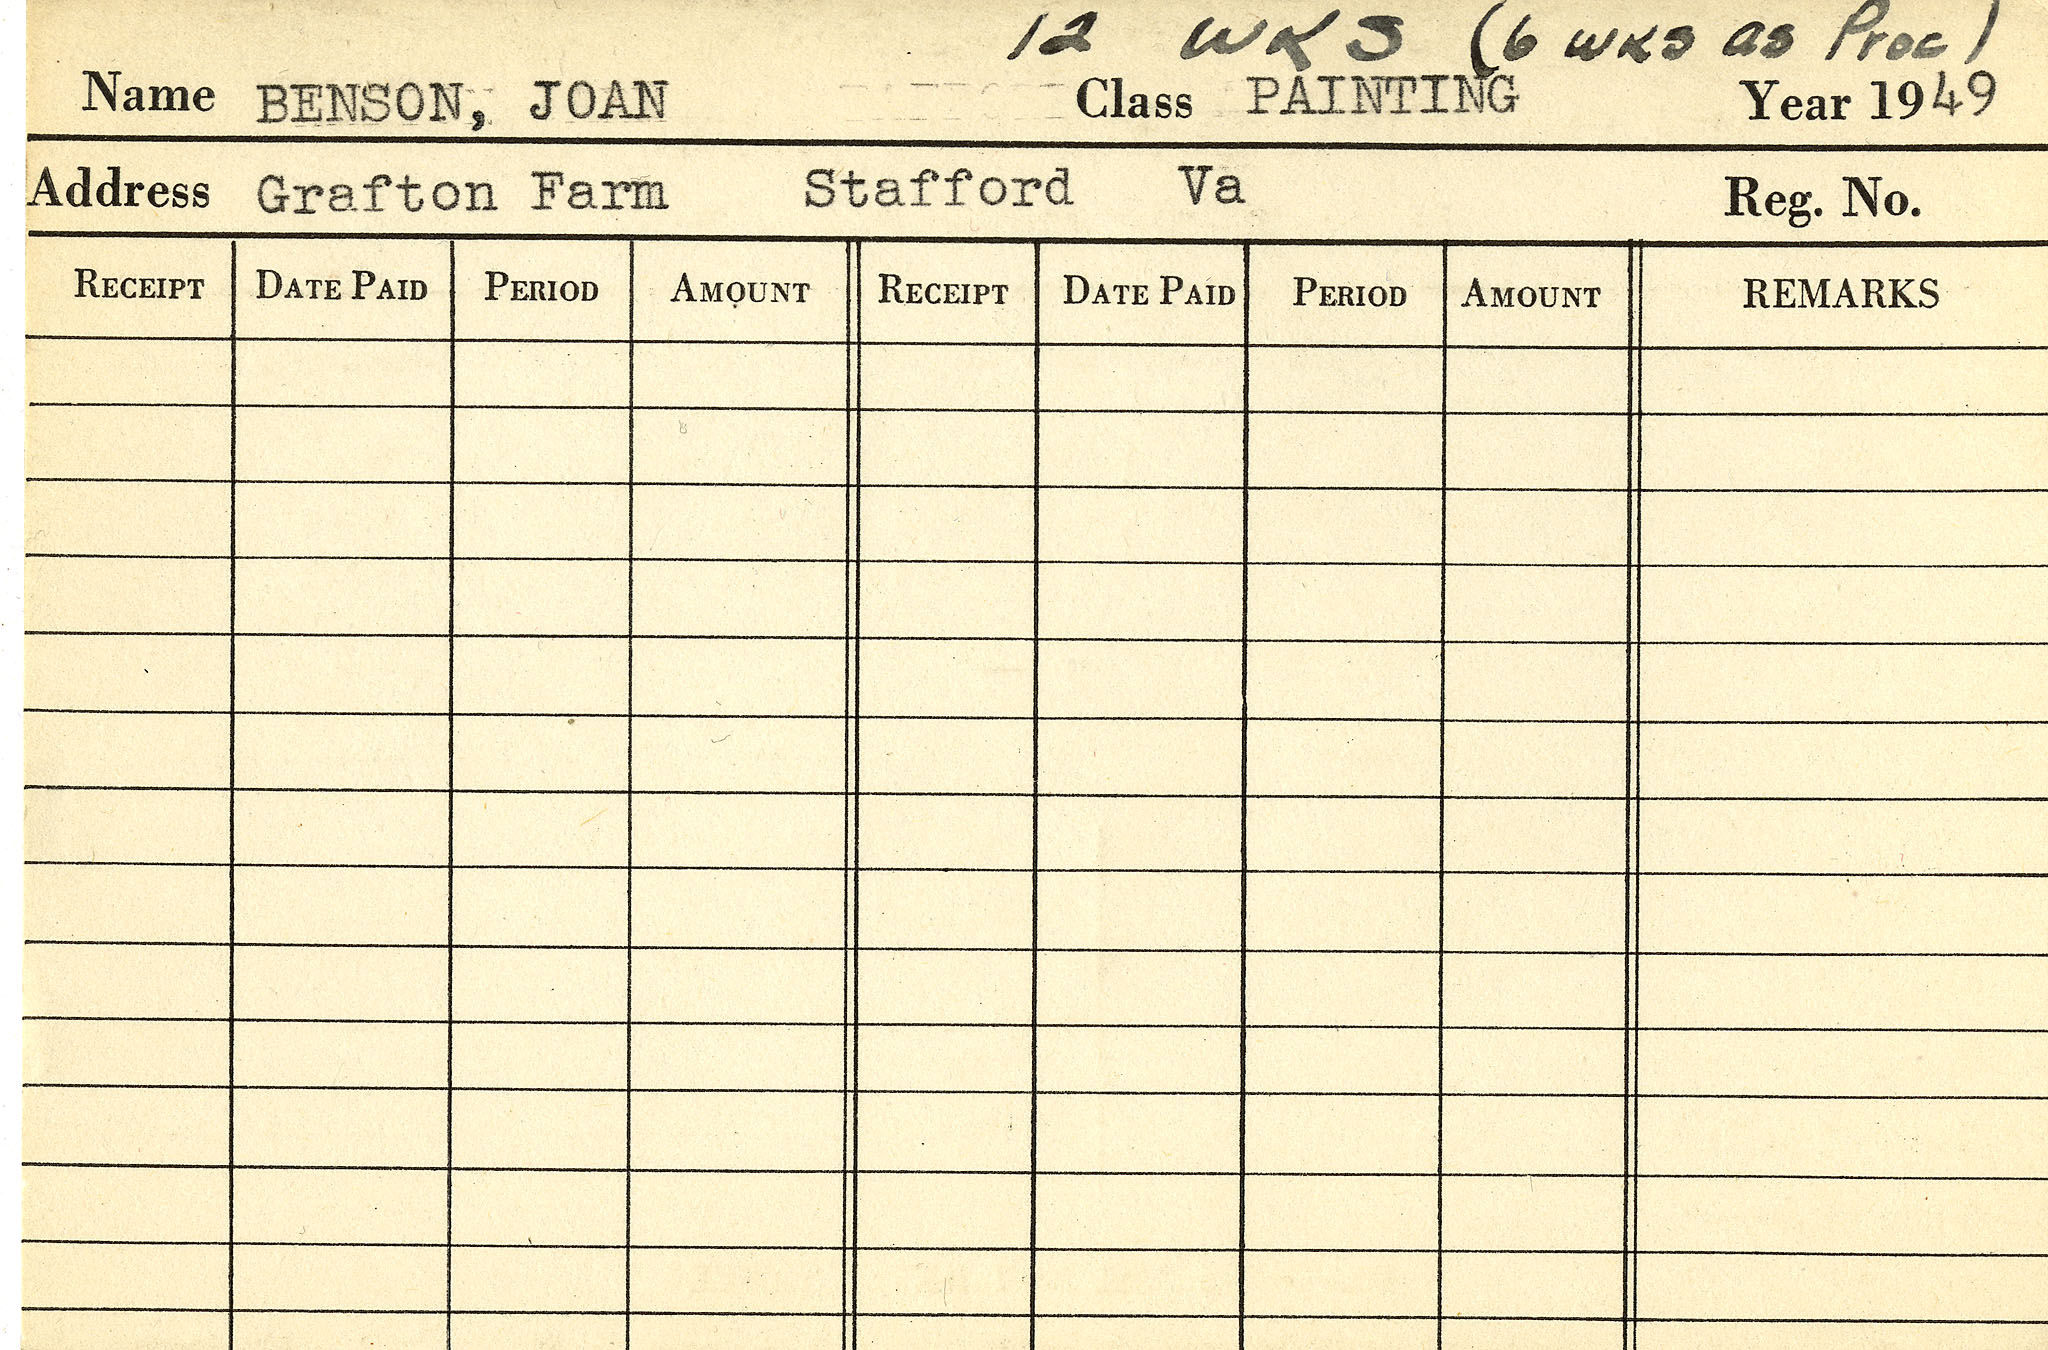 12 WKS (6 WKS as Proc)
Name BENSON, JOAN Class PAINTING Year 1949
Address Grafton Farm Stafford Va Reg. No.
RECEIPT DATE PAID PERIOD AMOUNT RECEIPT DATE PAID PERIOD AMOUNT REMARKS